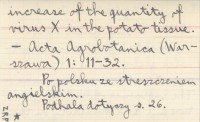 increase of the quantity of
virus X in the potato tissue.
— Acta Agrobotanica (War-
szawa) 1: 11-32.
Po polsku ze streszczeniem
angielskim.
Podhala dotyczy s. 26.